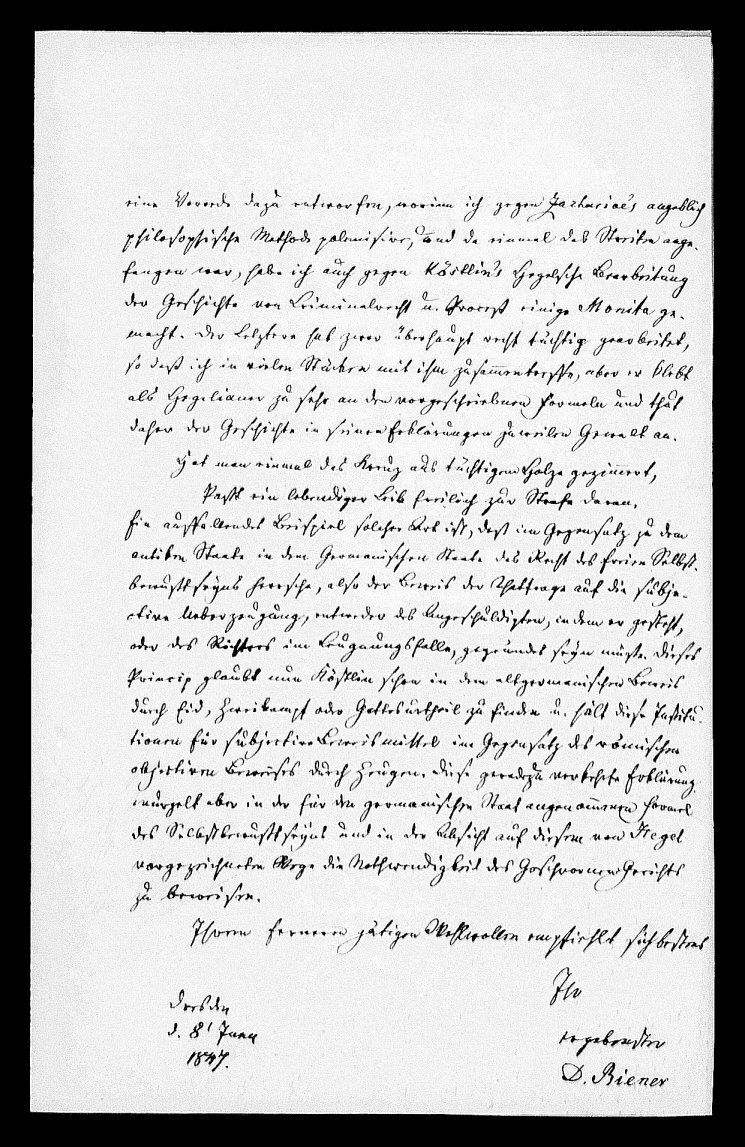 eine Vorrede dazu entworfen, worinn ich gegen Zachariae's angeblich
philosophische Methode polemisire, und da einmal das Streiten ange-
fangen war, habe ich auch gegen Köstlin's Hegelsche Bearbeitung
der Geschichte von Criminalrecht u. Proceß einige Monita ge-
macht. Der Letztere hat zwar überhaupt recht tüchtig gearbeitet,
so daß ich in vielen Stücken mit ihm zusammentreffe, aber er klebt
als Hegelianer zu sehr an den vorgeschriebnen Formeln und thut
daher der Geschichte in seinen Erklärungen zuweilen Gewalt an.
Hat man einmal das Kreuz aus tüchtigem Holze gezimmert,
Paßt ein lebendiger Leib freilich zur Strafe daran.
Ein auffallendes Beispiel solcher Art ist, daß im Gegensatz zu dem
antiken Staate in dem Germanischen Staate das Recht des freien Selbst-
bewustseyns herrsche, also der Beweis der Thatfrage auf die subje-
ctive Ueberzeugung, entweder des Angeschuldigten, indem er gesteht,
oder des Richters im Leugnungsfalle, gegründet seyn müsse. Dieses
Princip glaubt nun Köstlin schon in dem altgermanischen Beweis
durch Eid, Zweikampf oder Gottesurtheil zu finden u. hält diese Institu-
tionen für subjective Beweismittel im Gegensatz des römischen
objectiven Beweises durch Zeugen. Diese geradezu verkehrte Erklärung
wurzelt aber in der für den germanischen Staat angenommenen Formel
des Selbstbewustseyns und in der Absicht auf diesem von Hegel
vorgezeichneten Wege die Nothwendigkeit des Geschwornen Gerichts
zu beweisen.
Ihrem ferneren gütigen Wohlwollen empfiehlt sich bestens
Ihr
Dresden
d. 8t Juni
1847.
ergebenster
D. Biener